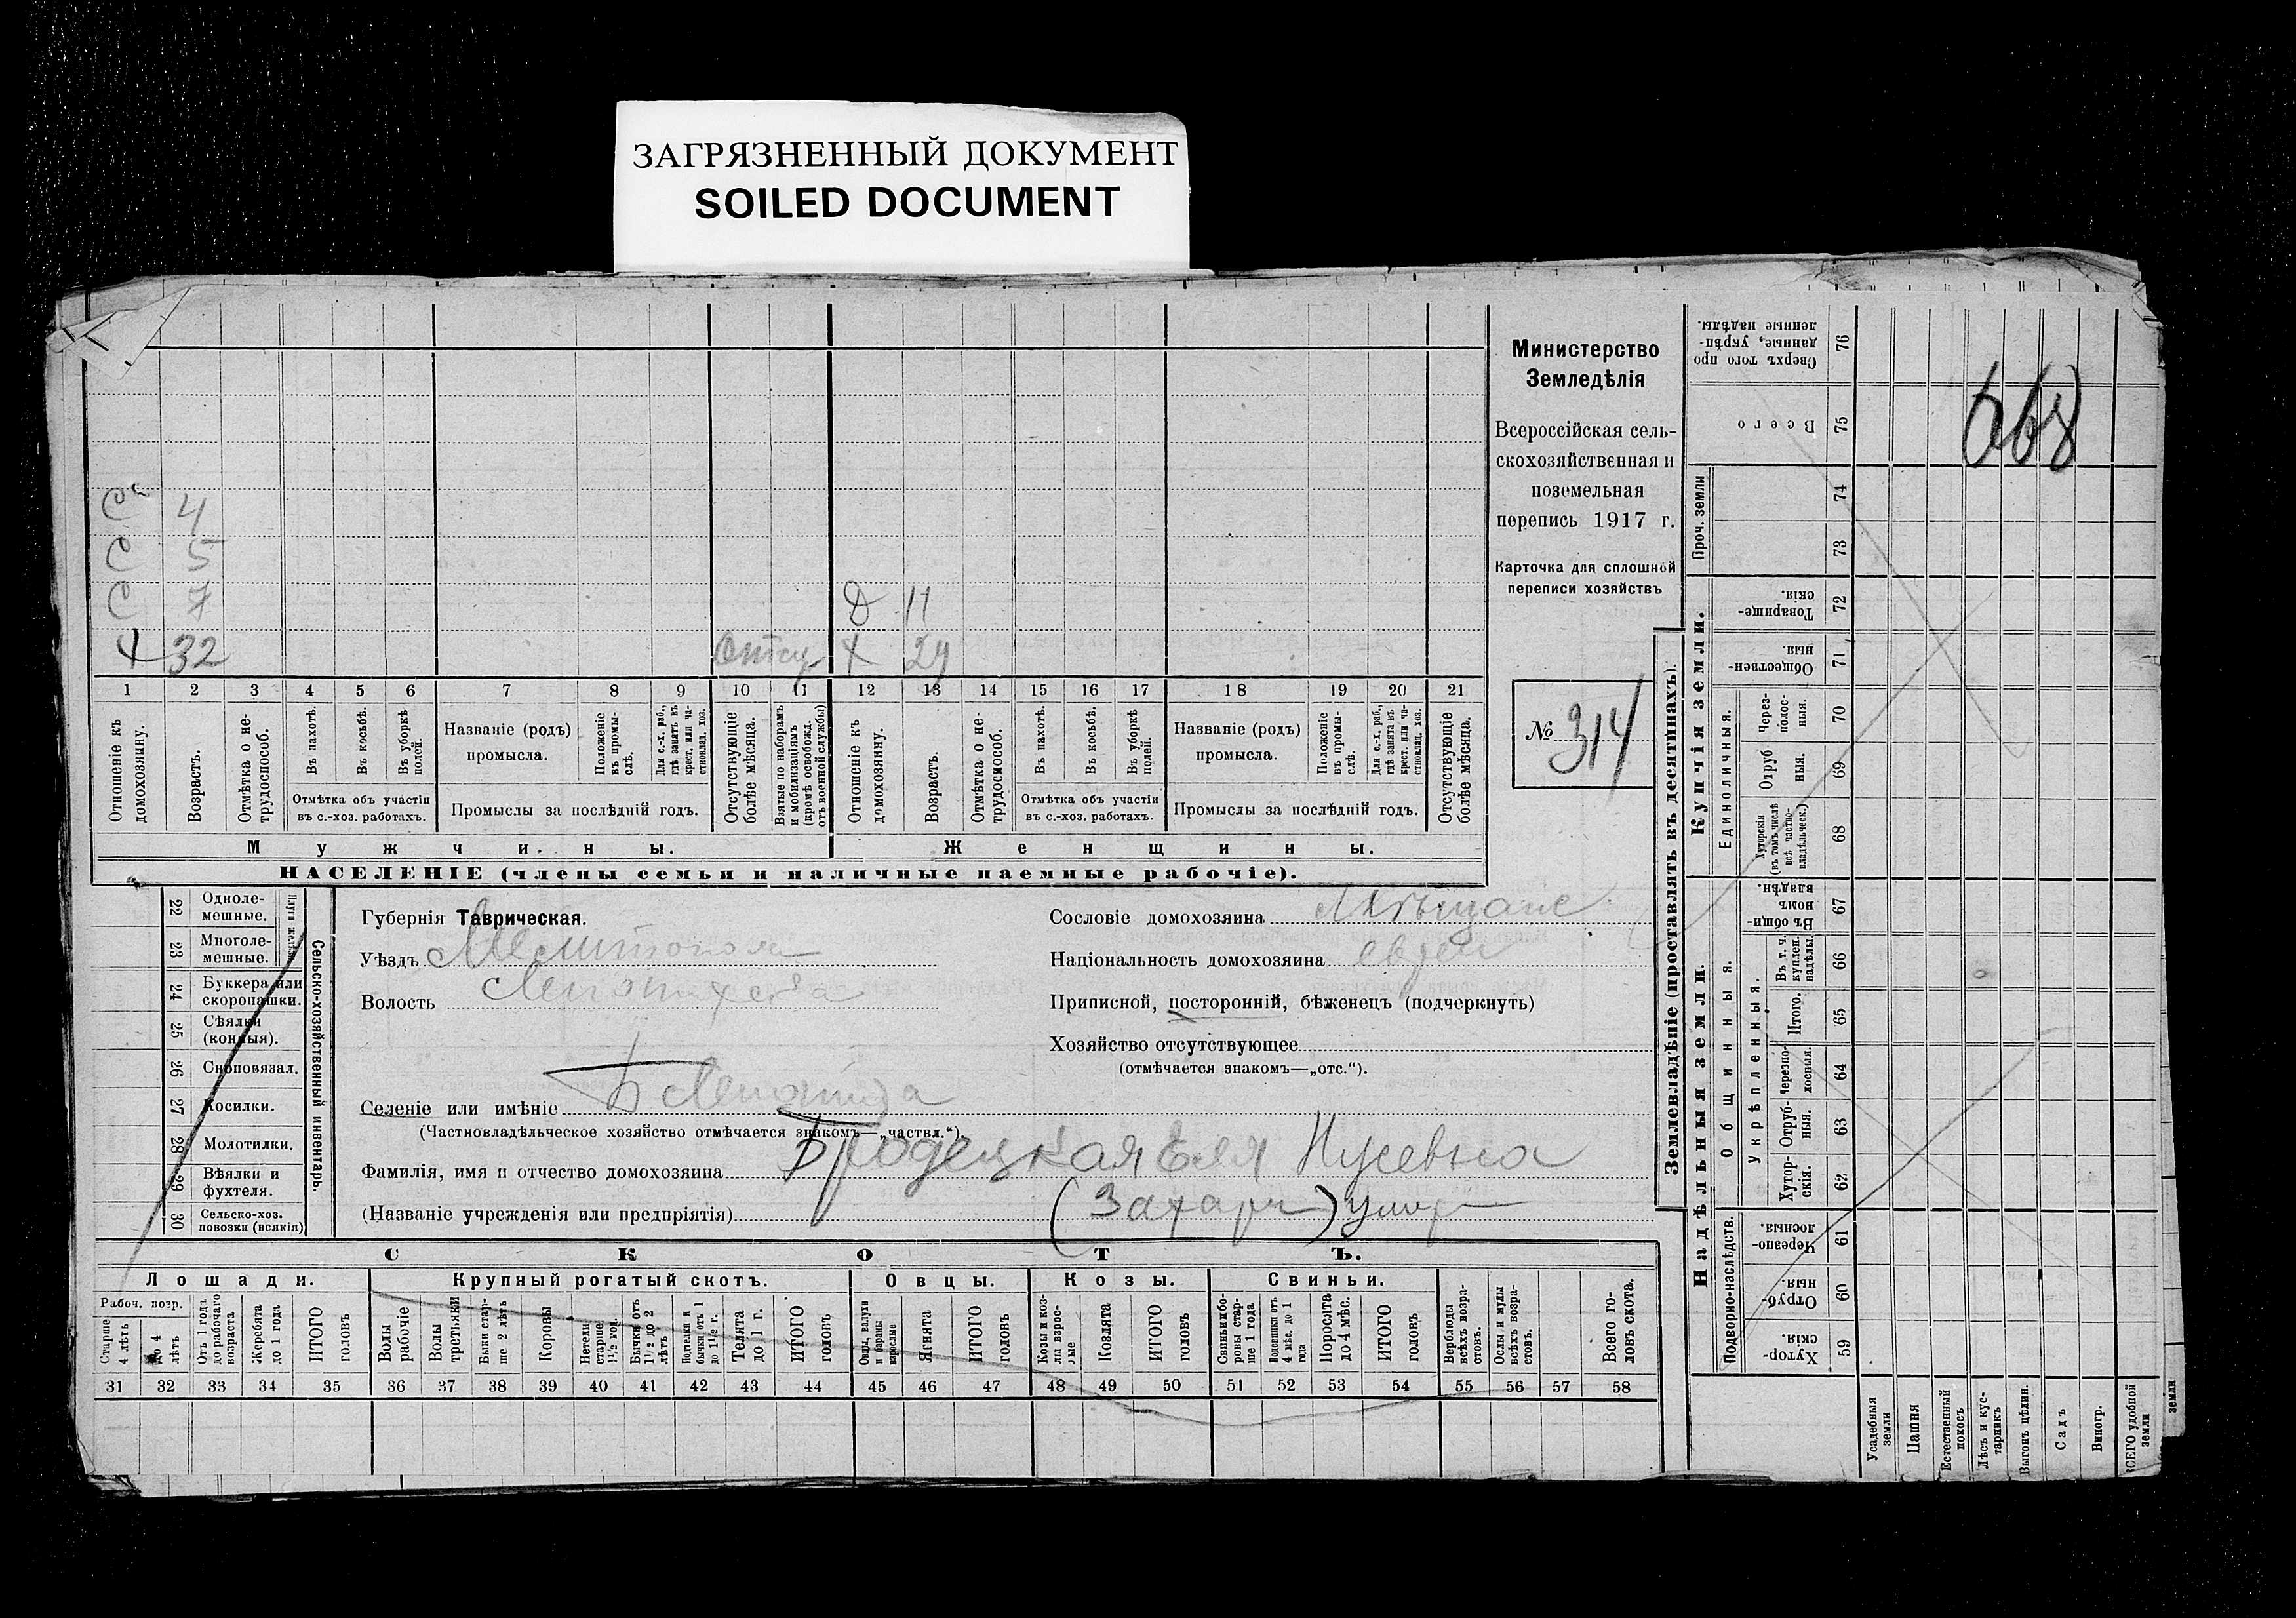 ЗАГРЯЗНЕННЫЙ ДОКУМЕНТ
SOILED DOCUMENT
С 4
С 5
С 7 Д 11
Х 32 Отсу Х 29
1 2 3 4 5 6 7 8 9 10 11 12 13 14 15 16 17 18 19 20 21
Отношеніе къ домохозяину.
Возрастъ.
Отмѣтка о не-
трудоспособ.
Въ пахотѣ.
Въ косьбѣ.
Въ уборкѣ
полей.
Отмѣтка объ участіи
въ с.-хоз. работахъ.
Названіе (родъ)
промысла.
Положеніе
въ промы-
слѣ.
Для с.-х. раб.,
гдѣ занятъ въ
крест. или ча-
стновлад. хоз.
Промыслы за послѣдній годъ.
Отсутствующіе
болѣе мѣсяца.
Взятые по наборамъ
и мобилизаціямъ
(кромѣ освобожд.
отъ военной службы)
Отношеніе къ
домохозяину.
Возрастъ.
Отмѣтка о не-
трудоспособ.
Въ пахотѣ.
Въ косьбѣ.
Въ уборкѣ
полей.
Отмѣтка объ участіи
въ с.-хоз. работахъ.
Названіе (родъ)
промысла.
Положеніе
въ промы-
слѣ.
Для с.-х. раб.,
гдѣ занята въ
крест. или ча-
стновлад. хоз.
Промыслы за послѣдній годъ.
Отсутствующіе
болѣе мѣсяца.
Мужчины.
Женщины.
НАСЕЛЕНІЕ (члены семьи и наличные наемные рабочіе).
Министерство
Земледѣлія
Всероссійская сель-
скохозяйственная и
поземельная
перепись 1917 г.
Карточка для сплошной
переписи хозяйствъ
№ 314
22 Одноле-
мешные.
23 Многоле-
мешные.
Плуги желѣзн.
24 Буккера или
скоропашки.
25 Сѣялки
(конныя).
26 Сноповязал.
27 Косилки.
28 Молотилки.
29 Вѣялки и
фухтеля.
30 Сельско-хоз.
повозки (всякія)
Сельско-хозяйственный инвентарь.
Губернія Таврическая.
Уѣздъ Мелитополь
Волость
Селеніе или имѣніе Б Лепатиха
(Частновладѣльческое хозяйство отмѣчается знакомъ—„частвл.“)
Фамилія, имя и отчество домохозяина Бродецкая Бея Нусевна
(Названіе учрежденія или предпріятія) (Захарч)
Сословіе домохозяина Мѣщане
Національность домохозяина евреи
Приписной, посторонній, бѣженецъ (подчеркнуть)
Хозяйство отсутствующее
(отмѣчается знакомъ—„отс.“).
СКОТЪ.
Лошади.
Рабоч. возр.
Старше
4 лѣтъ
До 4
лѣтъ
Отъ 1 года
до рабочаго
возраста
Жеребята
до 1 года
ИТОГО
головъ
Крупный рогатый скотъ.
Волы
рабочіе
Волы
третьяки
Быки стар-
ше 2 лѣтъ
Коровы
Нетели
старше
1½ год.
Бычки отъ
1½ до 2
лѣтъ
Подтелки и
бычки отъ 1
до 1½ г.
Телята
до 1 г.
ИТОГО
головъ
Овцы.
Овцы, валухи
и бараны
взрослые
Ягнята
ИТОГО
головъ
Козы.
Козы и коз-
лы взрос-
лые
Козлята
ИТОГО
головъ
Свиньи.
Свиньи и бо-
ровы стар-
ше 1 года
Подсвинки отъ
4 мѣс. до 1
года
Поросята
до 4 мѣс.
ИТОГО
головъ
Верблюды
всѣхъ возра-
стовъ.
Ослы и мулы
всѣхъ возра-
стовъ.
Всего го-
ловъ скота.
31 32 33 34 35 36 37 38 39 40 41 42 43 44 45 46 47 48 49 50 51 52 53 54 55 56 57 58
Землевладѣніе (проставлять въ десятинахъ).
Надѣльныя земли.
Купчія земли.
Проч. земли
Подворно-наслѣдств.
Общинныя.
Укрѣпленныя.
Единоличныя.
Сверхъ того про
данные, укрѣп-
ленные надѣлы. 76
Всего 75
74
73
Товарище-
скія. 72
Обществен-
ныя. 71
Через-
полос-
ныя. 70
Отруб
ныя. 69
Хуторскія
(въ томъ числѣ
всѣ частно-
владѣльческ.) 68
Въ общи-
номъ
владѣн. 67
Въ т. ч.
куплен.
надѣлы. 66
Итого. 65
Черезпо-
лосныя. 64
Отруб-
ныя. 63
Хутор-
скія. 62
Черезпо-
лосныя. 61
Отруб-
ныя. 60
Хутор-
скія. 59
Усадебныя
земли
Пашня
Естественный
покосъ
Лѣсъ и кус-
тарникъ
Выгонъ цѣлин.
Садъ
Виногр.
ВСЕГО удобной
земли
земли